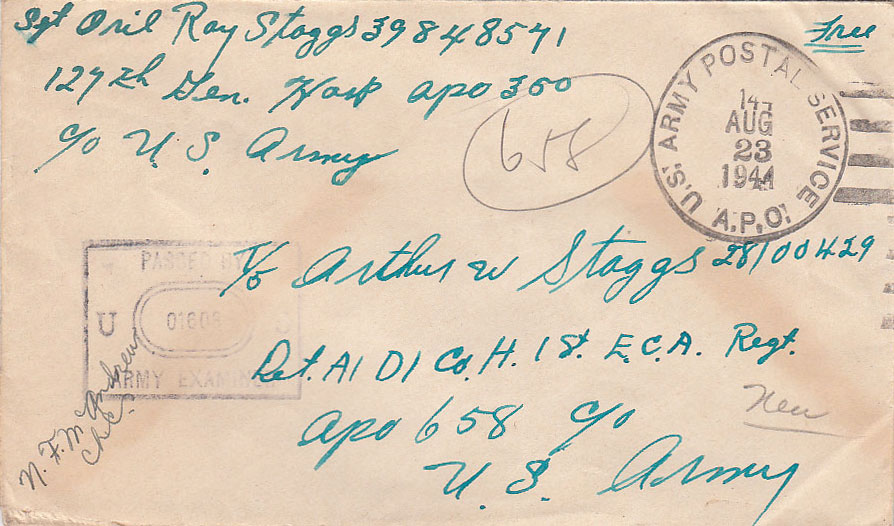 Sgt Oril Ray Staggs 39848571
Free
127th Gen. Hosp apo 360
c/o U. S. Army
658
U.S. ARMY POSTAL SERVICE
AUG
23
1944
A.P.O.
T/5 Arthur W Staggs 28100429
PASSED BY
U S
ARMY EXAMINER
Det. A1 D1 Co. H. 1 St. E.C.A. Regt.
New
apo 658 c/o
U. S. Army